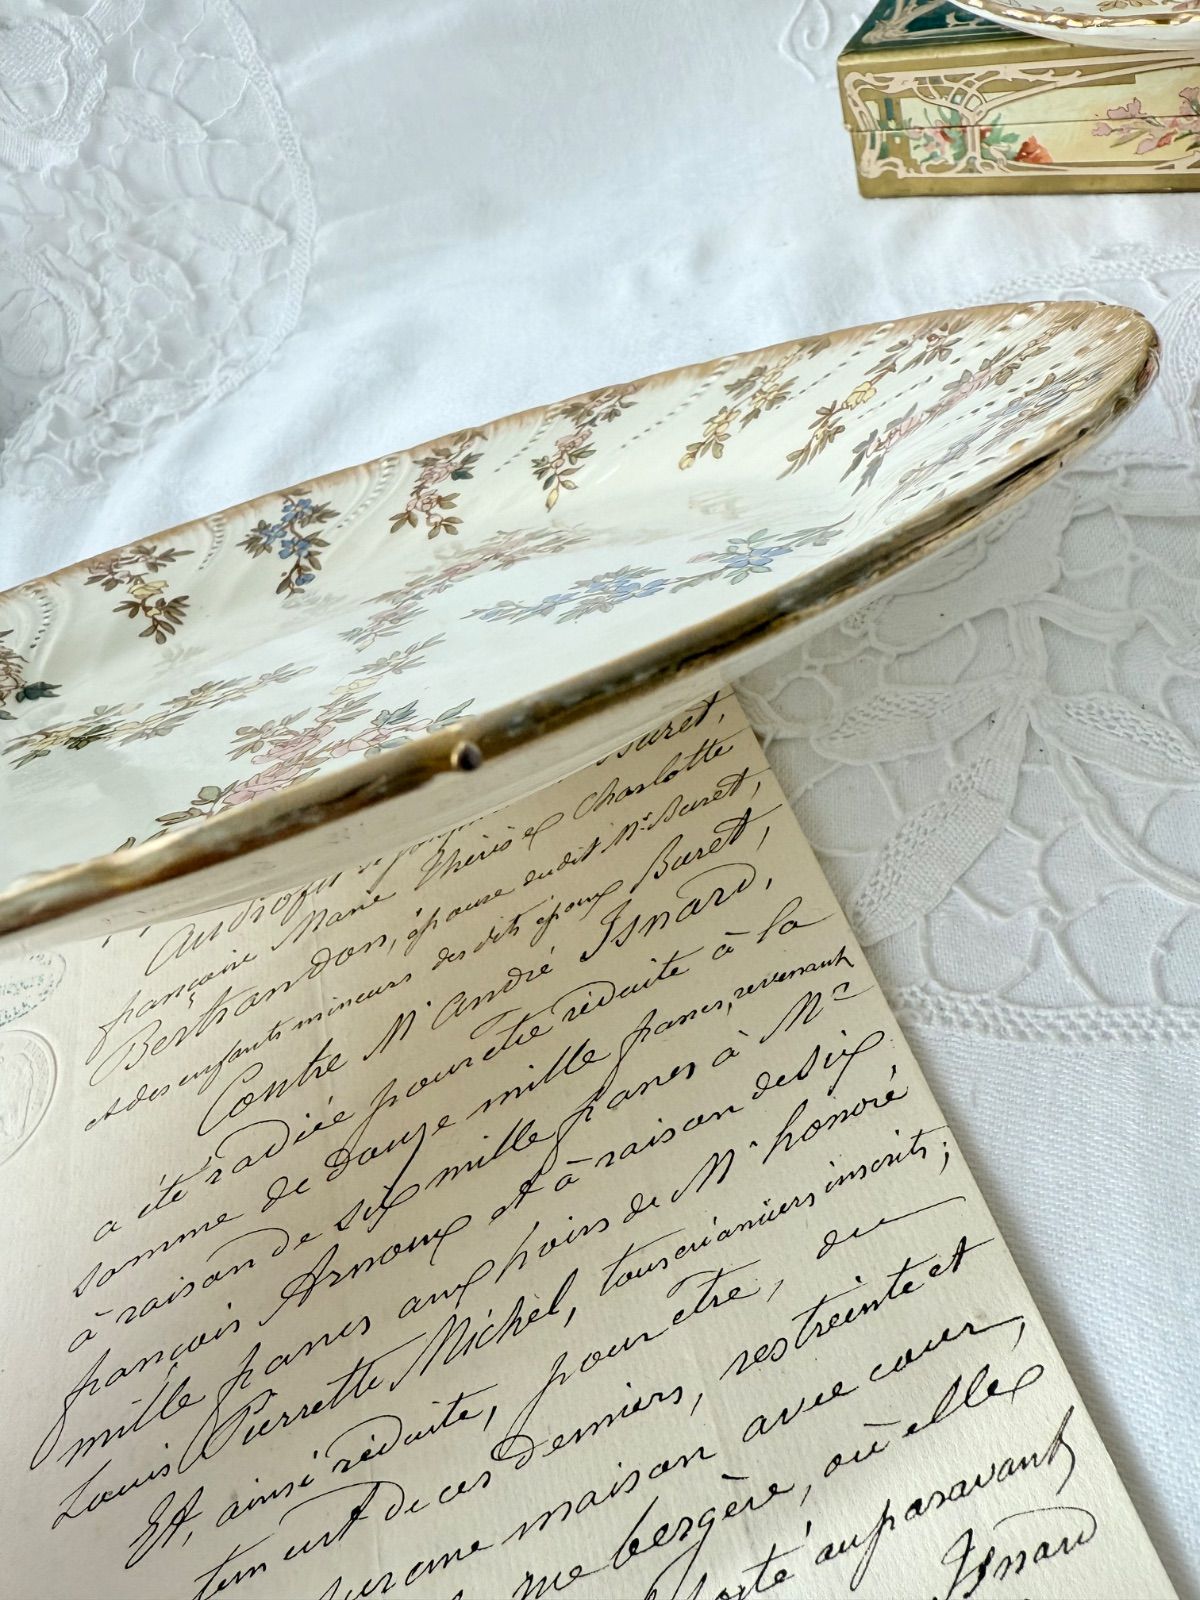 Buret,
Au Profit
françoise Marie Thérèse Charlotte
Bertrandon, épouse dudit Mr Buret,
et des enfants mineurs des dits époux Buret,
Contre Mr André Isnard,
a été radiée pour être réduite à la
somme de douze mille francs, revenant
à raison de six mille francs à Mr
françois Arnoux et à raison de six
mille francs aux hoirs de Mr honoré
Louis Pierrette Michel, tous créanciers inscrits;
Et, ainsi réduite, pour être, du
de ces derniers, restreinte et
sur une maison avec cour,
bergère, où elle
porté auparavant
Isnard